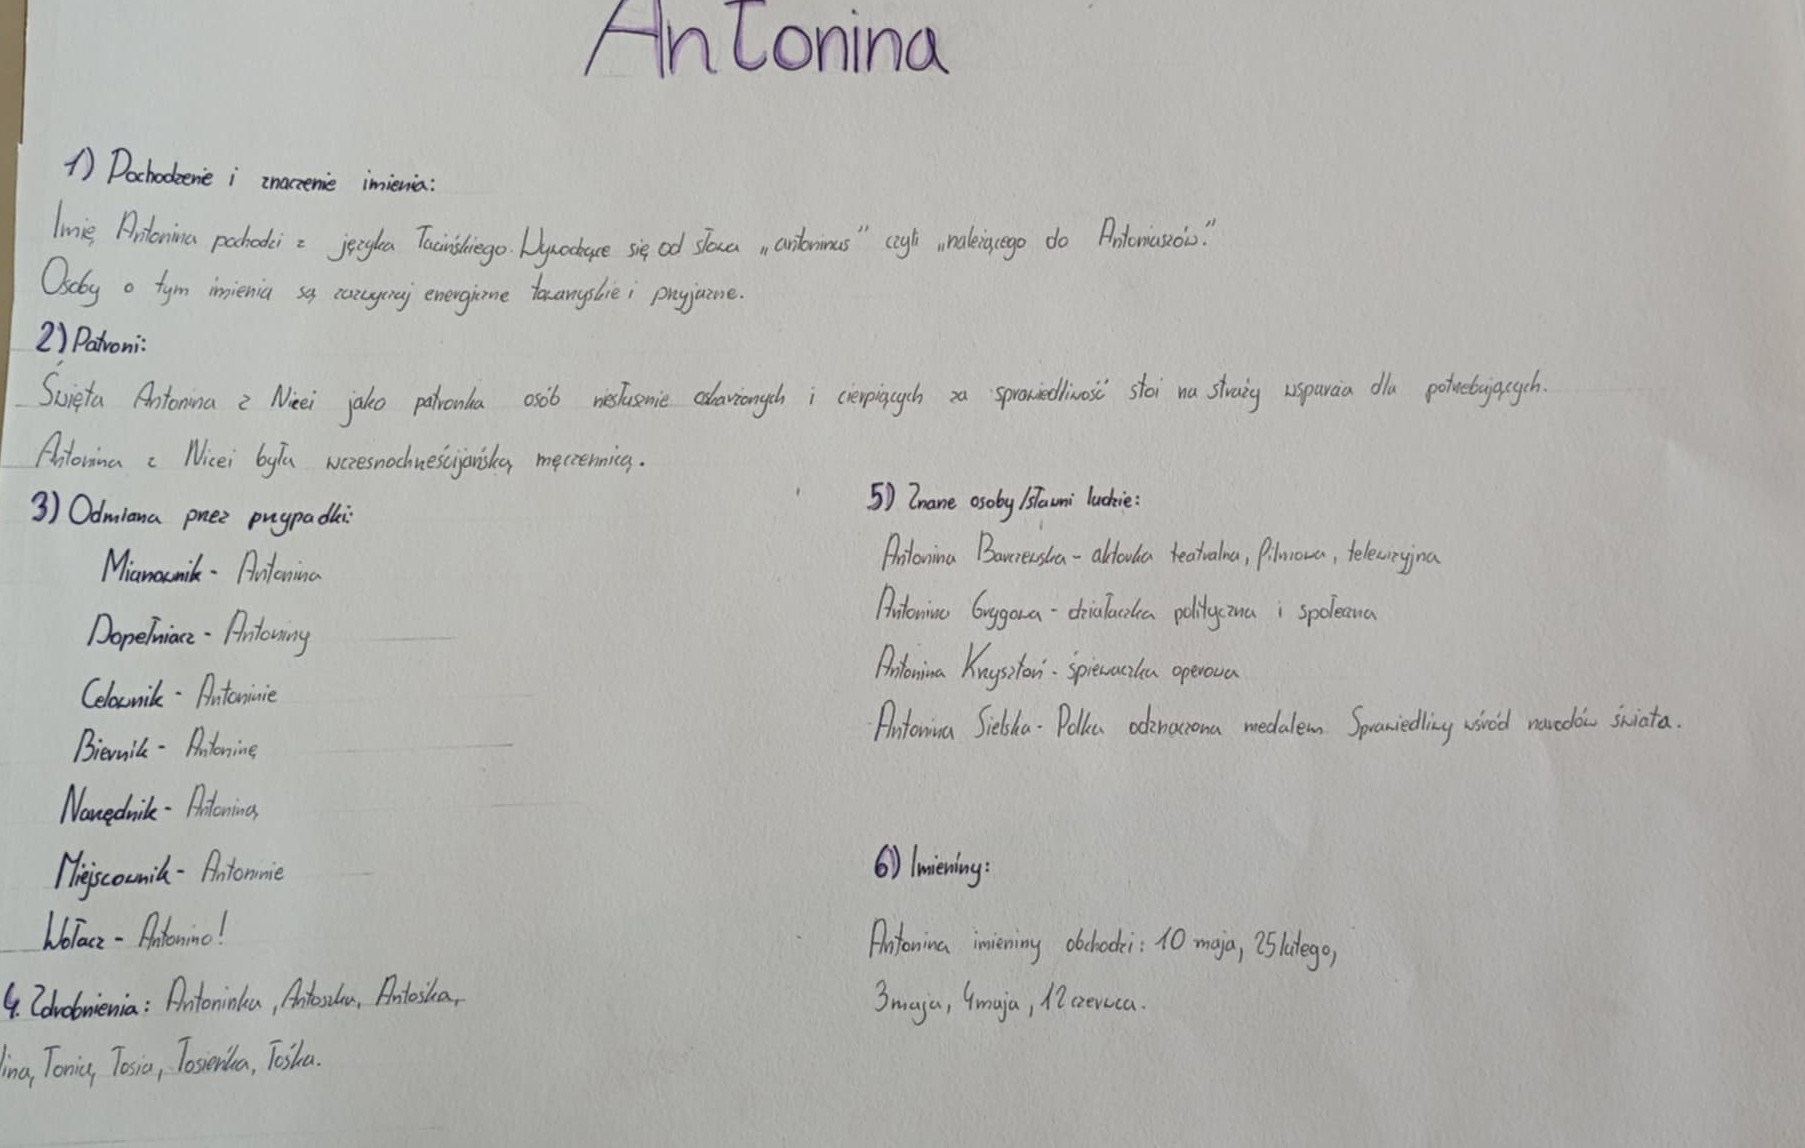 Antonina
1) Pochodzenie i znaczenie imienia:
Imię Antonina pochodzi z języka łacińskiego. Wywodzące się od słowa „antoninus” czyli „należącego do Antoniuszów.”
Osoby o tym imieniu są zazwyczaj energiczne towarzyskie i przyjazne.
2) Patroni:
Święta Antonina z Nicei jako patronka osób niesłusznie oskarżonych i cierpiących za sprawiedliwość stoi na straży wsparcia dla potrzebujących.
Antonina z Nicei była wczesnochrześcijańską męczennicą.
3) Odmiana przez przypadki:
Mianownik - Antonina
Dopełniacz - Antoniny
Celownik - Antoninie
Biernik - Antoninę
Narzędnik - Antoniną
Miejscownik - Antoninie
Wołacz - Antonino!
4. Zdrobnienia: Antoninka, Antoszka, Antośka,
ina, Tonia, Tosia, Tosieńka, Tośka.
5) Znane osoby/sławni ludzie:
Antonina Barczewska - aktorka teatralna, filmowa, telewizyjna
Antonina Grygowa - działaczka polityczna i społeczna
Antonina Krzysztoń - śpiewaczka operowa
Antonina Sielska - Polka odznaczona medalem Sprawiedliwy wśród narodów świata.
6) Imieniny:
Antonina imieniny obchodzi: 10 maja, 25 lutego,
3 maja, 4 maja, 12 czerwca.